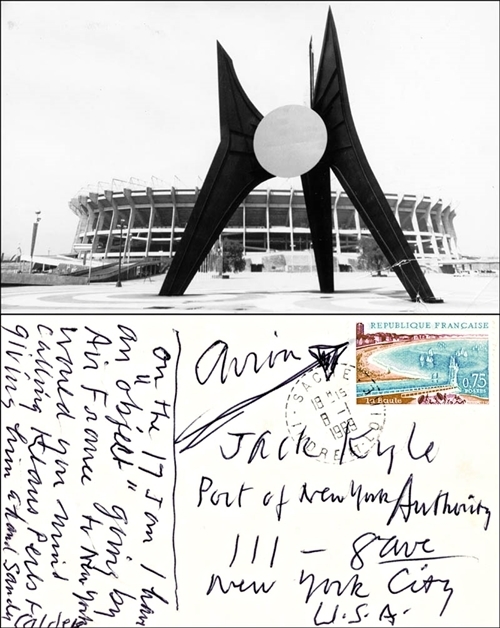 on the 17 Jan I have
an "object" going by
Air France to New York
Would you mind
calling Klaus Perls &
giving him a hand Sandy
Calder
avion
REPUBLIQUE FRANÇAISE
La Baule
0,75
POSTES
SACHE
18 H 15
8-1
1969
Jack Kyle
Port of New York Authority
111 - 8 ave
New York City
U.S.A.